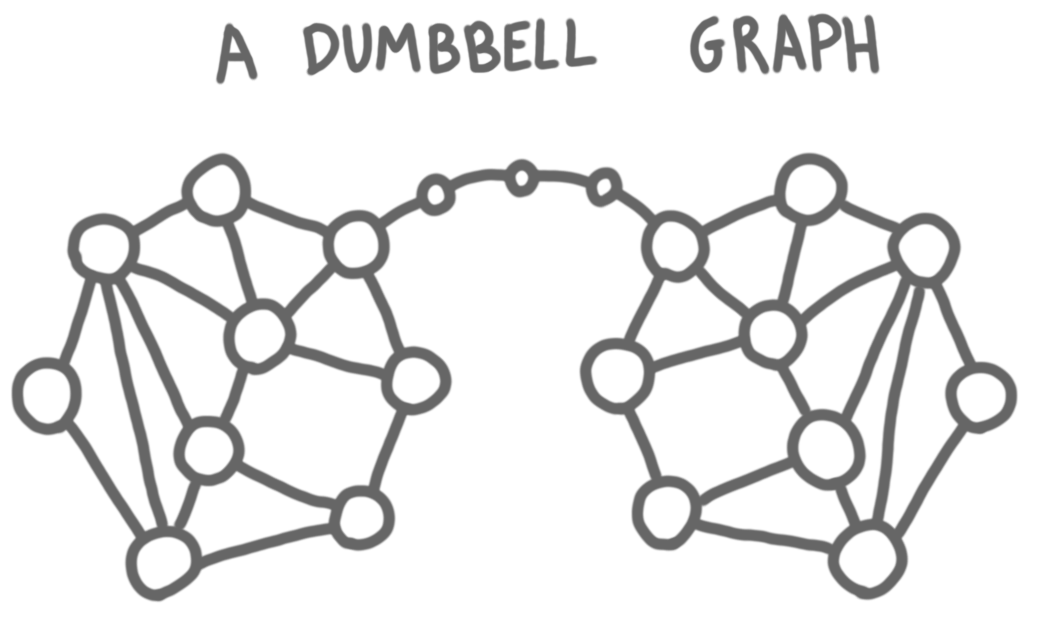 A DUMBBELL GRAPH